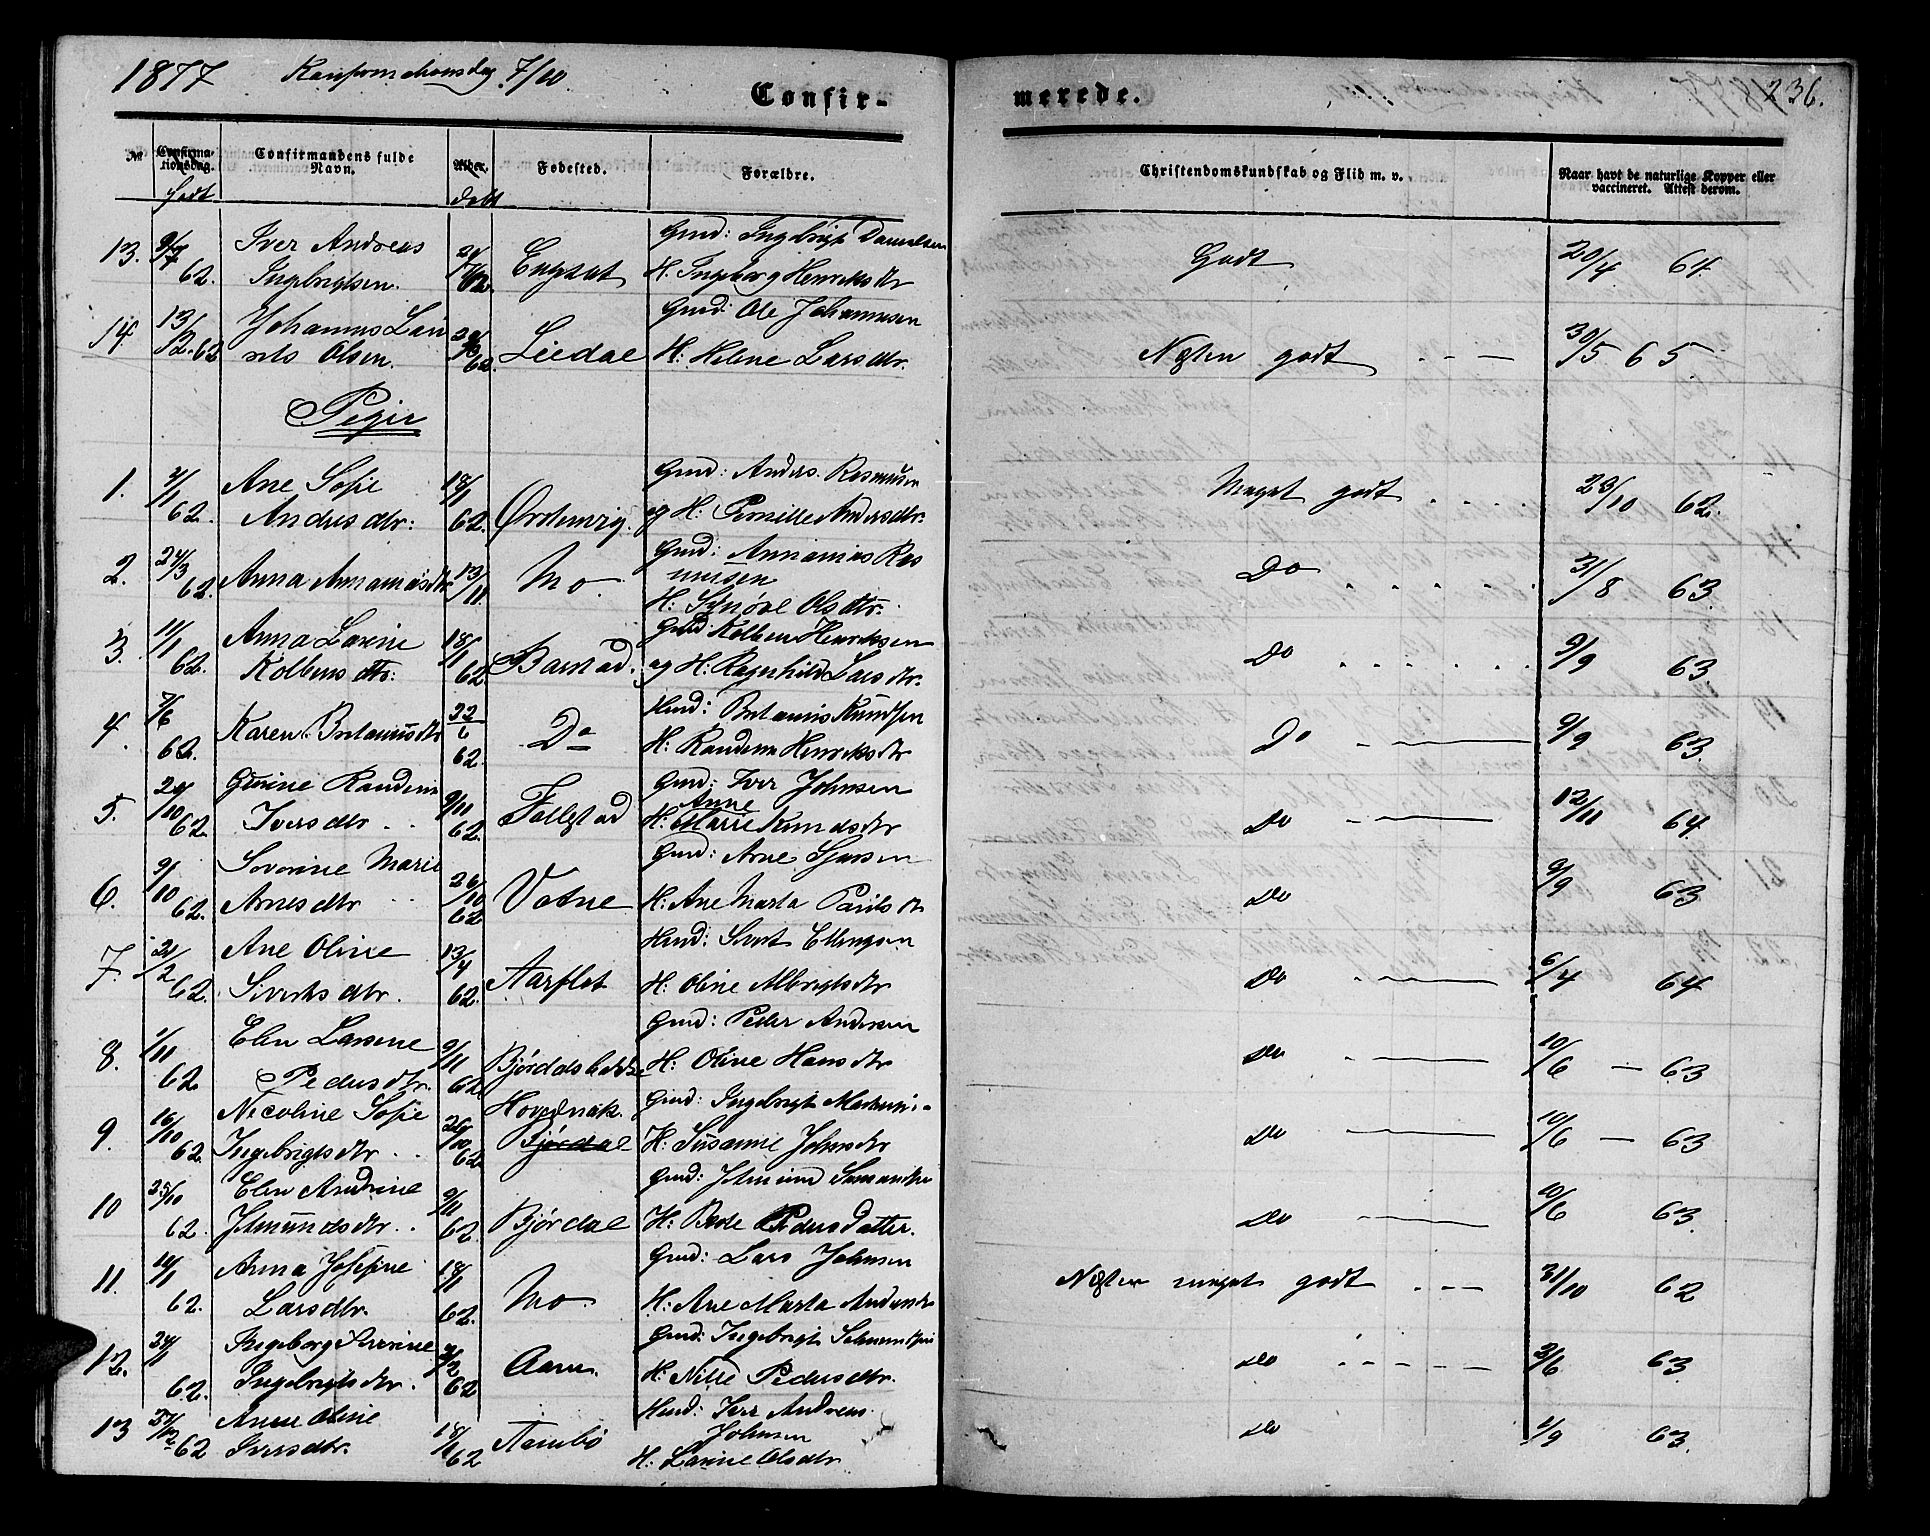 1877 Konfirmationsdag 7/10.
Confir-
merede.
236.
№
Confirma-
tionsdag.
født
Confirmandens fulde
Navn.
Alder.
døbt
Fødested.
Forældre.
Christendomskundskab og Flid m. v.
Naar havt de naturlige Kopper eller
vaccineret. Attest derom.
13. 62. Iver Andreas Gmd: Ingebrigt Danielsen
Ingebrigtsen. H: Ingeborg Henriksdtr Godt 20/4 64.
14 13/12. 62 Johannes Lau Gmd: Ole Johannesen
rits Olsen. 62. Liedal H: Helene Larsdtr. Næsten godt 30/5 65
Piger
1. 62. Ane Sofie 18/1 Gmd: Anders. Rasmusen
Andersdtr: 62. Ørstenvig. og H: Pernille Andersdtr: Meget godt 23/10 62.
2. 24/3 62. Anna Annaniasdtr 13/11 Mo. Gmd: Annanias Ras
musen
H: Synøve Olsdtr. Do 31/8 63.
3. 11/1 62. Anna Larine 18/1 Gmd: Kolben Henriksen
Kolbensdtr: 62. Barstad. og H: Ragnhild Larsdtr. Do 9/9 63.
4. 7/6 62. Karen Bertaniusdtr 22/6 62. Do Gmd: Bertanius Knudsen
H: Randine Henriksdtr Do 9/9 63.
5. 62. Gurine Randine 9/11 Gmd: Iver Johnsen
Anne
Iversdtr 62. Follestad H: Marie Knudsdtr Do 12/11 64.
6. 9/10 62. Severine Marie 26/10 Gmd: Arne
Arnesdtr 62 Votne H: Ane Marta Paulsdtr Do 9/9 63
7. 21/2 62. Ane Oline 13/4 Gmd: Sivert Ellingsen
Sivertsdtr. 62. Aarflot H: Oline Albrigtsdtr Do 6/4 64
8. 1/11 62 Elen Larsine 9/11 Gmd: Peder Andersen
Pedersdtr. 62 H: Oline Hansdtr Do 10/6 63
9. 16/10 62. Nicoline Sofie 26/10 Gmd: Ingebrigt
Ingebrigtsdtr 62 Bjørdal H: Susanne Johnsdtr Do 10/6 63
10 25/10 62. Elen Andrine 9/11 Gmd:
62. Bjørdal H: Pedersdatter. Do 10/6 63.
11. 62. Anna Josefine 18/1 Gmd: Lars Johnsen
Larsdtr. 62. Mo. H: Ane Marta Andersdtr Næsten meget godt 31/10 62
12. 62. Ingeborg Gmd: Ingebrigt
Ingebrigtsdtr. 62 Aam. H: Nille Pedersdtr. Do 63
13 62 Anne Oline Gmd: Iver Andreas
Johnsen
Iversdtr. 62 H: Larine Olsdtr Do 1/9 63.